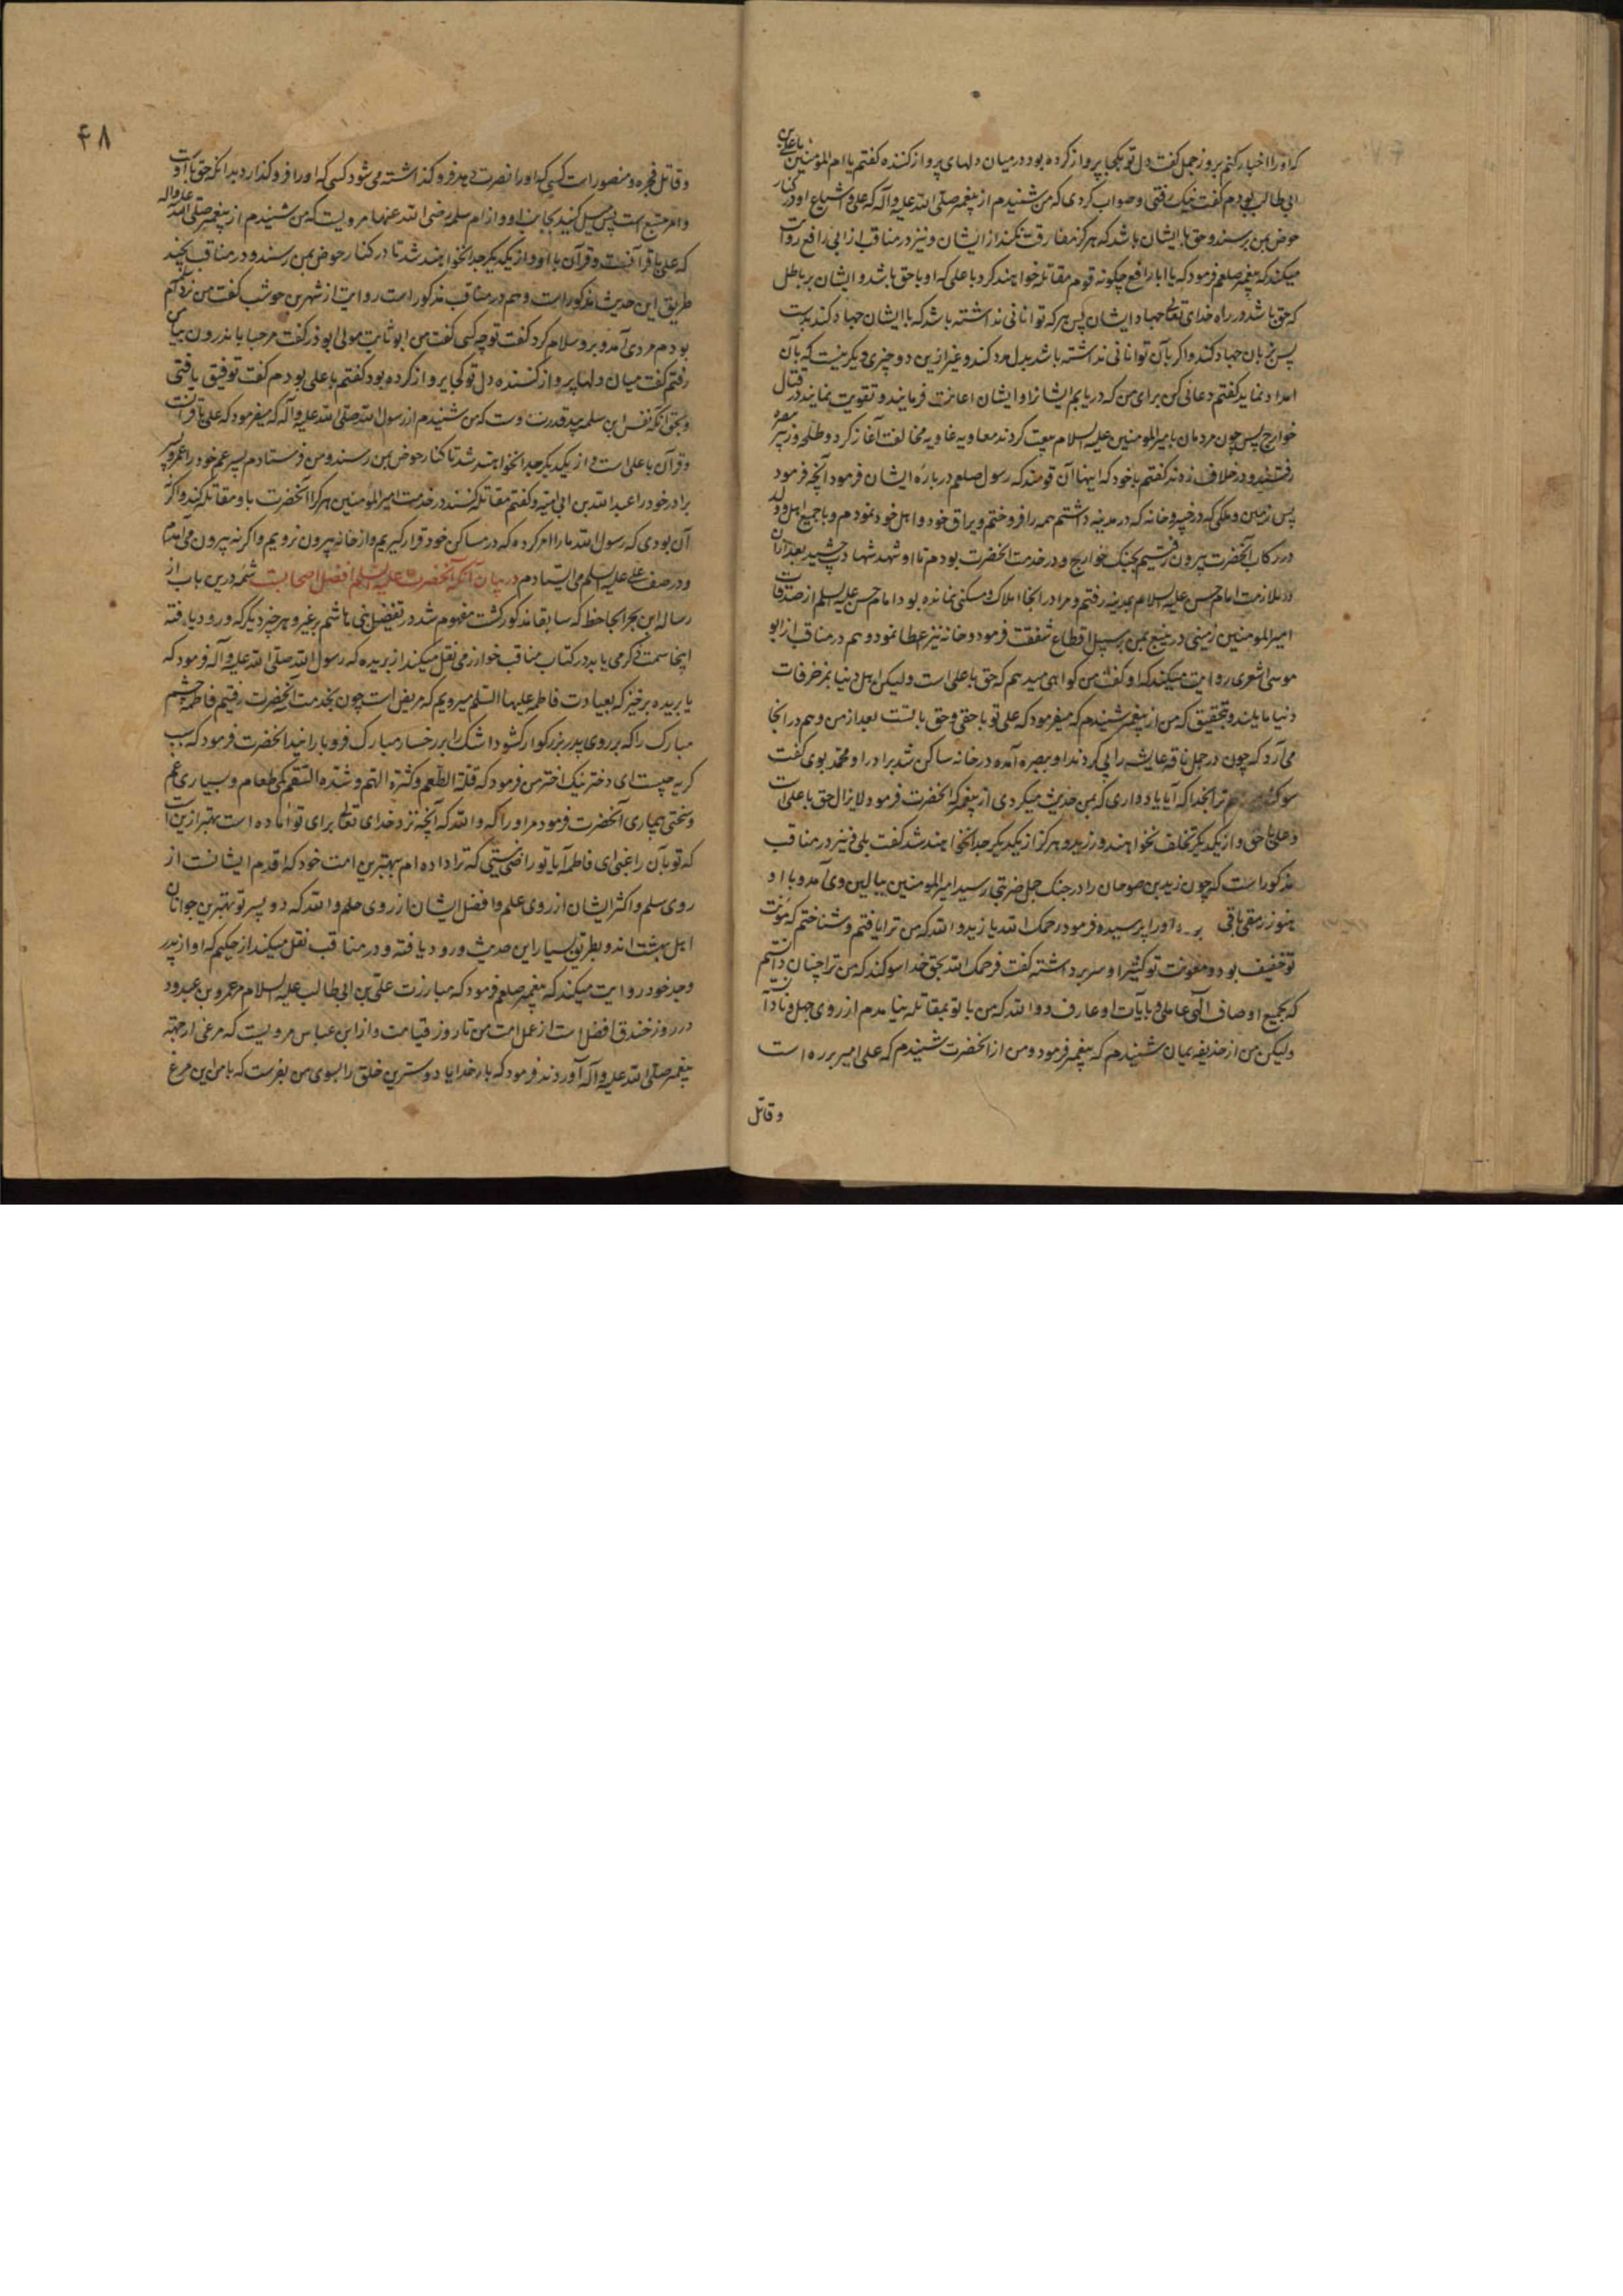 که او را اخبار کنم بروز جمل گفت دل تو بکجا پرواز کرده بود در میان دلهای پرواز کننده گفتم یا ام المؤمنین با علی بن
ابی طالب بودم گفت نیک رفتی و صواب کردی که من شنیدم از پیغمبر صلی الله علیه و آله که علی و اشیاع او در کنار
حوض بمن رسند و حق با ایشان باشد که هرگز مفارقت نکند از ایشان و نیز در مناقب از ابی رافع روایت
میکند که پیغمبر صلعم فرمود که یا ابا رافع چگونه قوم مقاتله خواهند کرد با علی که او با حق باشد و ایشان بر باطل
که حق باشد در راه خدای تعالی جهاد ایشان پس هر که توانائی نداشته باشد که با ایشان جهاد کند بدست
پس بزبان جهاد کند و اگر بآن توانائی نداشته باشد بدل مدد کند و غیر ازین دو چیزی دیگر نیست که بآن
امداد نماید گفتم دعائی کن برای من که دریابم ایشانرا و ایشان اعانت فرمایند و تقویت نمایند در قتال
خوارج پس چون مردمان با میرالمومنین علیه السلام بیعت کردند معاویه غاویه مخالفت آغاز کرد و طلحه و زبیر ببصره
رفتند و در خلاف زدند گفتم با خود که اینها آن قومند که رسول صلعم درباره ایشان فرمود آنچه فرمود
پس زمین و ملکی که در خیبر و خانه که در مدینه داشتم همه را فروختم و یراق خود و اهل خود نمودم و با جمیع اهل و ولد
در رکاب آنحضرت بیرون رفتیم بجنگ خوارج و در خدمت آنحضرت بودم تا او شهد شهادت چشید بعد ازان
در ملازمت امام حسن علیه السلام بمدینه رفتم و مرا در انجا املاک و مسکنی نمانده بود امام حسن علیه السلم از صدقات
امیرالمومنین زمینی در ینبع بمن بر سبیل اقطاع شفقت فرمود و خانه نیز عطا نمود و هم در مناقب از ابو
موسی اشعری روایت میکند که او گفت من گواهی میدهم که حق با علی است ولیکن اهل دنیا بمزخرفات
دنیا مایلند و بتحقیق که من از پیغمبر شنیدم که میفرمود که علی تو با حقی و حق با تست بعد از من و هم در انجا
می آرد که چون در جمل ناقه عایشه را پی کردند او ببصره آمده در خانه ساکن شد برادر او محمد بوی گفت
سوکند ترا بخدا که آیا یاد داری که بمن حدیث میکردی از پیغمبر که آنحضرت فرمود لا یزال حق با علی است
و علی با حق و از یکدیگر تخلف نخواهند ورزید و هرگز از یکدیگر جدا نخواهند شد گفت بلی و نیز در مناقب
مذکور است که چون زید بن صوحان را در جنگ جمل ضربتی رسید امیرالمومنین ببالین وی آمد و با او
هنوز رمقی باقی او را پرسیده فرمود رحمک الله یا زید و الله که من ترا یافتم و شناختم که مؤنت
تو خفیف بود و معونت تو کثیر او سر برداشته گفت فرحمک الله بحق خدا سوکند که من ترا چنان دانستم
که بجمیع اوصاف الهی عاملی و بآیات او عارف و والله که من با تو بمقاتله نیامدم از روی جهل و نادانسته
ولیکن من از حذیفه یمان شنیدم که پیغمبر فرمود و من از آنحضرت شنیدم که علی امیر برره است
و قاتل
۴۸
و قاتل فجره و منصور است کسی که او را نصرت دهد و فرو گذاشته می شود کسی که او را فرو گذارد بدانکه حق با اوست
و امر متبع است پس میل کنید بجانب او و از ام سلمه رضی الله عنها مرویست که من شنیدم از پیغمبر صلی الله علیه و اله
که علی با قرآنست و قرآن با او و از یکدیگر جدا نخواهند شد تا در کنار حوض بمن رسند و در مناقب بچند
طریق این حدیث مذکور است و هم در مناقب مذکور است روایت از شهر بن حوشب گفت من نزد ام سلمه
بودم مردی آمد و برو سلام کرد گفت تو چه کسی گفت من ابو ثابت مولی ابوذر گفت مرحبا باندرون بیا
رفتم گفت میان دلها پرواز کننده دل تو کجا پرواز کرده بود گفتم با علی بودم گفت توفیق یافتی
و بحق آنکه نفس ابن سلمه بید قدرت اوست که من شنیدم از رسول الله صلی الله علیه و آله که میفرمود که علی با قرآنست
و قرآن با علی است و از یکدیگر جدا نخواهند شد تا کنار حوض بمن رسند و من فرستادم پسر عم خود را عمرو و پسر
برادر خود را عبد الله بن ابی امیه و گفتم مقاتله کنند در خدمت امیرالمؤمنین هر کرا آنحضرت با او مقاتله کند و اگر نه
آن بودی که رسول الله ما را امر کرده که در مساکن خود قرار گیریم و از خانه بیرون نرویم و اگر نه بیرون می آمدم
و در صف علی علیه السلم می ایستادم در بیان آنکه آنحضرت علیه السلم افضل اصحابست شمه درین باب از
رساله ابن بحر الجاحظ که سابقا مذکور گشت مفهوم شد در تفضیل بنی هاشم بر غیر و هر چیز دیگر که ورود یافته
اینجا سمت ذکر می یابد در کتاب مناقب خوارزمی نقل میکند از بریده که رسول الله صلی الله علیه و آله فرمود که
یا بریده برخیز که بعیادت فاطمه علیها السلم میرویم که مریض است چون بخدمت آنحضرت رفتیم فاطمه چشم
مبارک را که بر روی پدر بزرگوار گشود اشک را بر رخسار مبارک فرو بارانید آنحضرت فرمود که سبب
گریه چیست ای دختر نیک اختر من فرمود که قلة الطعم و کثرة الهم و شدة السقم کمی طعام و بسیاری غم
و سختی بیماری آنحضرت فرمود مر او را که والله که آنچه نزد خدای تعالی برای تو آماده است بهتر ازین است
که تو بآن راغبی ای فاطمه آیا تو راضی نیستی که ترا داده ام ببهترین امت خود که اقدم ایشانست از
روی سلم و اکثر ایشان از روی علم و افضل ایشان از روی حلم و الله که دو پسر تو بهترین جوانان
اهل بهشت اند و بطریق بسیار این حدیث ورود یافته و در مناقب نقل میکند از حکیم که او از پدر
و جد خود روایت میکند که پیغمبر صلعم فرمود که مبارزت علی بن ابی طالب علیه السلام مر عمرو بن عبدود
در روز خندق افضل است از عمل امت من تا روز قیامت و از ابن عباس مرویست که مرغی از جهة
پیغمبر صلی الله علیه و آله آوردند فرمود که بار خدایا دوسترین خلق را بسوی من بفرست که با من این مرغ